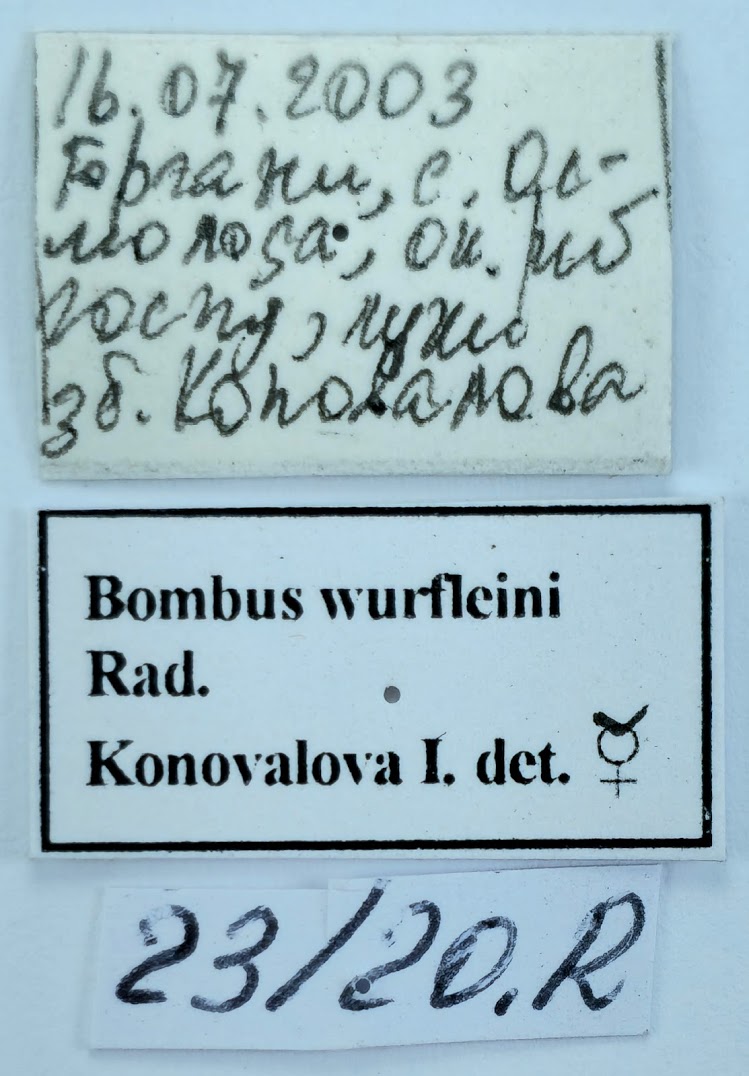 16.07.2003
Горгани, с. Ос-
молода, ок. риб
госпу, луки
зб. Коновалова
Bombus wurfleini
Rad.
Konovalova I. det. ☿
23/20.R